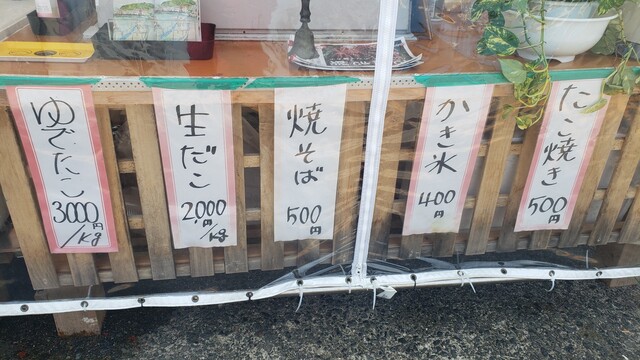 ゆでたこ
3000円/kg
生だこ
2,000円/kg
焼そば
500円
かき氷
400円
たこ焼き
500円